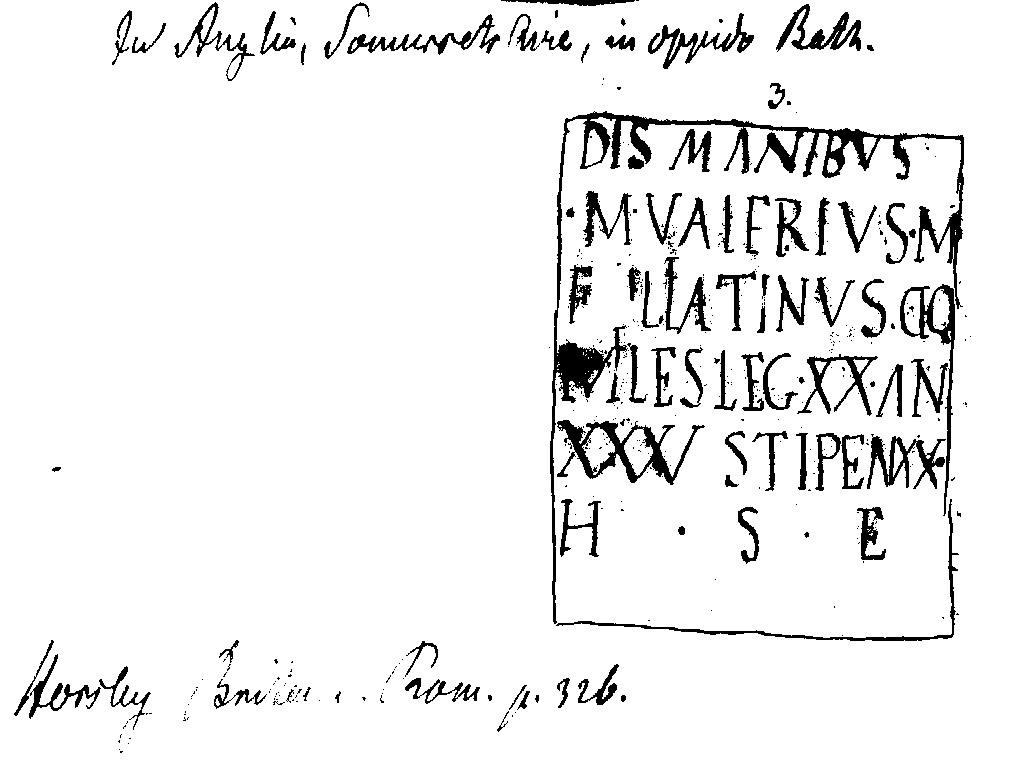 In Anglia, Sommersetshire, in oppido Bath.
3.
DIS MANIBVS
·M·VALERIVS·M
F LATINVS·C·EQ
MILES LEG·XX·AN
XXXV STIPEN XX·
H · S · E
Horsley Britan. Rom. p. 326.